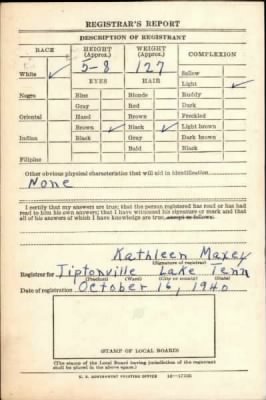 REGISTRAR'S REPORT
DESCRIPTION OF REGISTRANT
RACE HEIGHT (Approx.) WEIGHT (Approx.) COMPLEXION
5-8 127 Sallow
White ✓ EYES HAIR Light ✓
Negro Blue Blonde Ruddy
Gray Red Dark
Oriental Hazel Brown Freckled
Brown ✓ Black ✓ Light brown
Indian Black Gray Dark brown
Bald Black
Filipino
Other obvious physical characteristics that will aid in identification
None
I certify that my answers are true; that the person registered has read or has
had read to him his own answers; that I have witnessed his signature or mark and that
all of his answers of which I have knowledge are true, except as follows:
Kathleen Maxey
(Signature of registrar)
Registrar for Tiptonville Lake Tenn
(Precinct) (Ward) (City or county) (State)
Date of registration October 16, 1940
(STAMP OF LOCAL BOARD)
(The stamp of the Local Board having jurisdiction of the registrant
shall be placed in the above space.)
U. S. GOVERNMENT PRINTING OFFICE